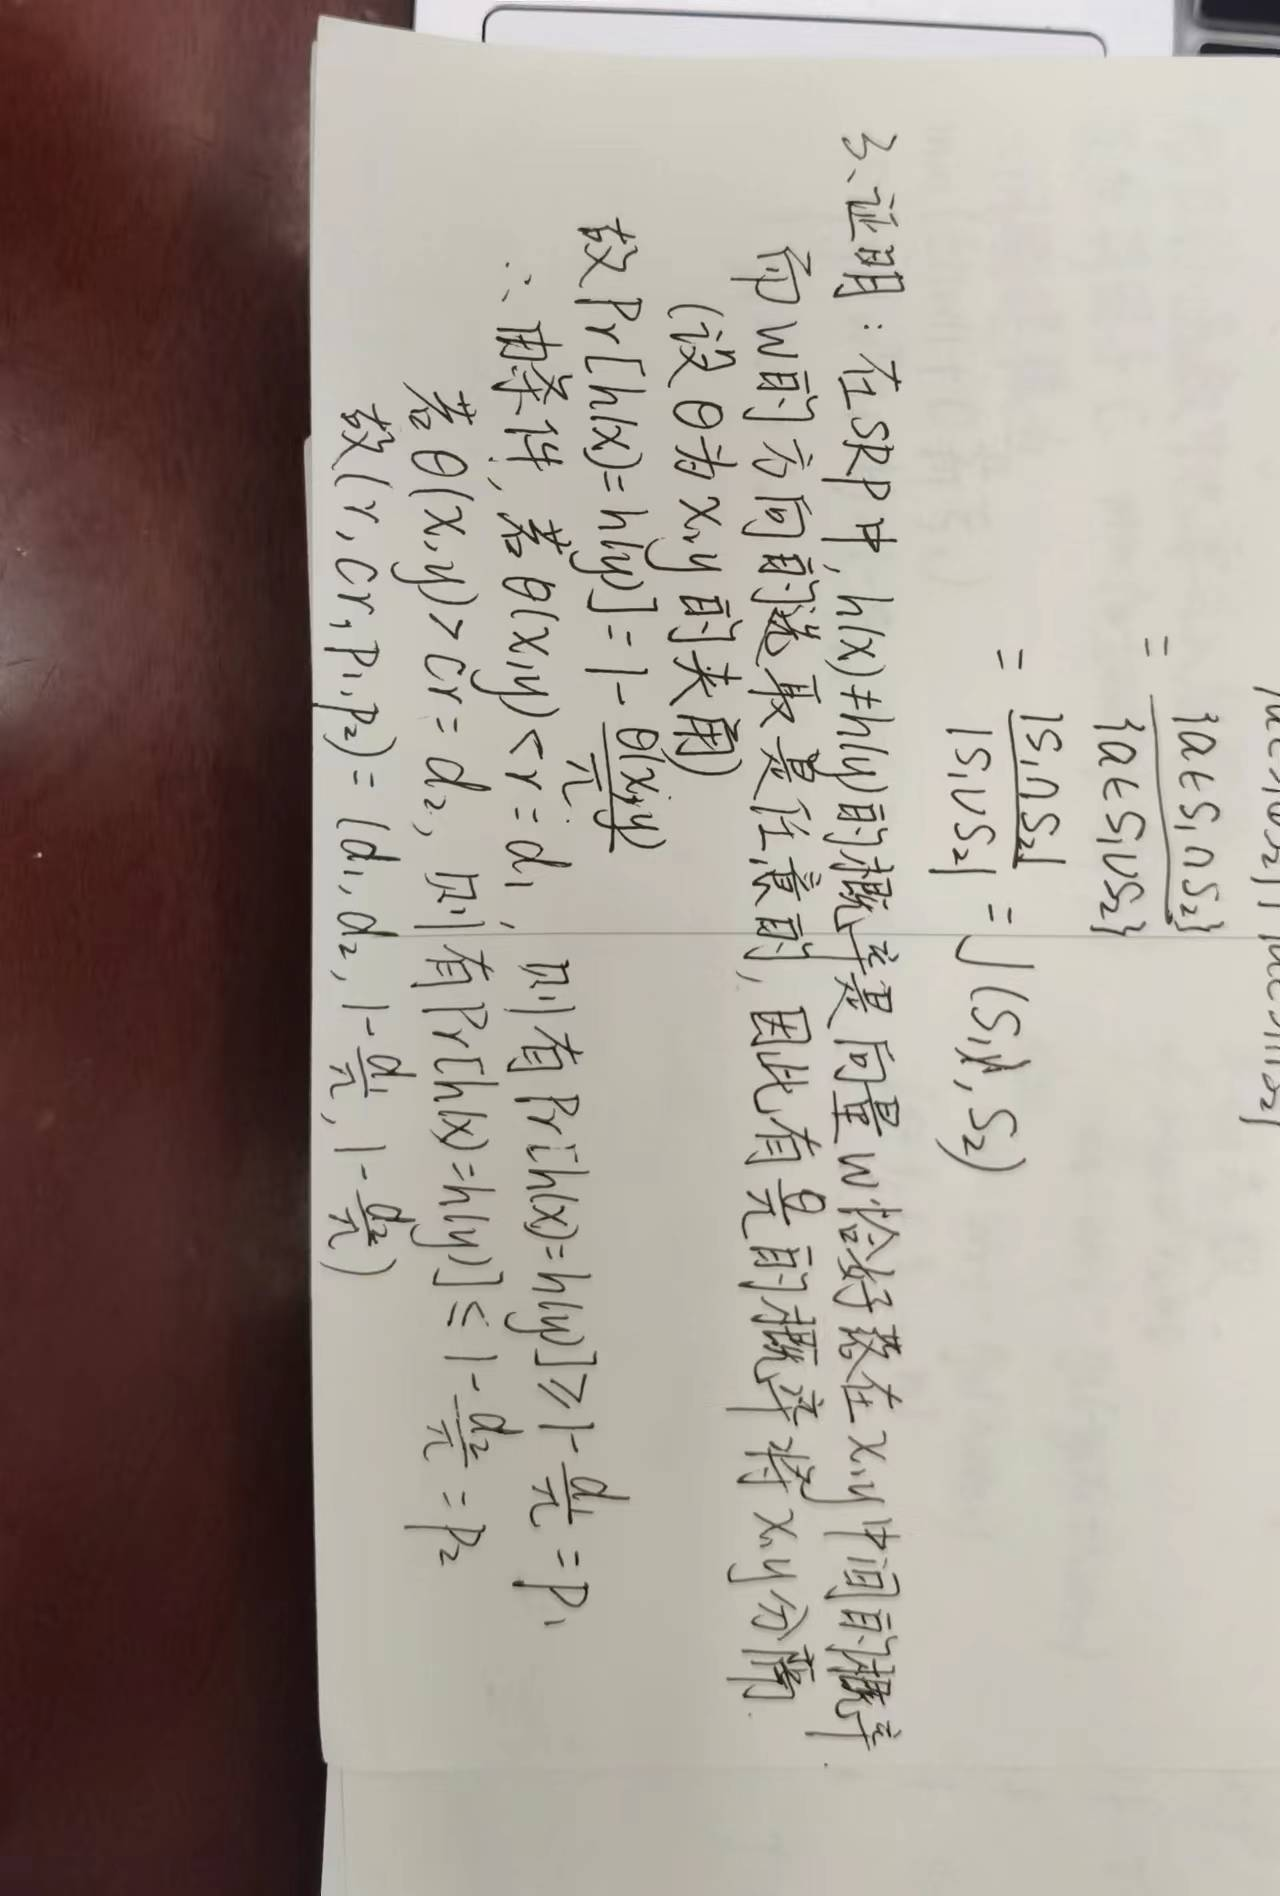 = {a∈S₁∩S₂} / {a∈S₁∪S₂}
= |S₁∩S₂| / |S₁∪S₂| = J(S₁, S₂)
3、证明：在SRP中, h(x)≠h(y)的概率是向量w恰好落在x,y中间的概率.
而w的方向的选取是任意的, 因此有 θ/π 的概率将x,y分离
(设θ为x,y的夹角)
故Pr[h(x)=h(y)]=1-θ(x,y)/π
∴由条件, 若θ(x,y)<r=d₁, 则有Pr[h(x)=h(y)]≥1-d₁/π=p₁
若θ(x,y)>cr=d₂, 则有Pr[h(x)=h(y)]≤1-d₂/π=p₂
故(r,cr,p₁,p₂)=(d₁,d₂,1-d₁/π,1-d₂/π)